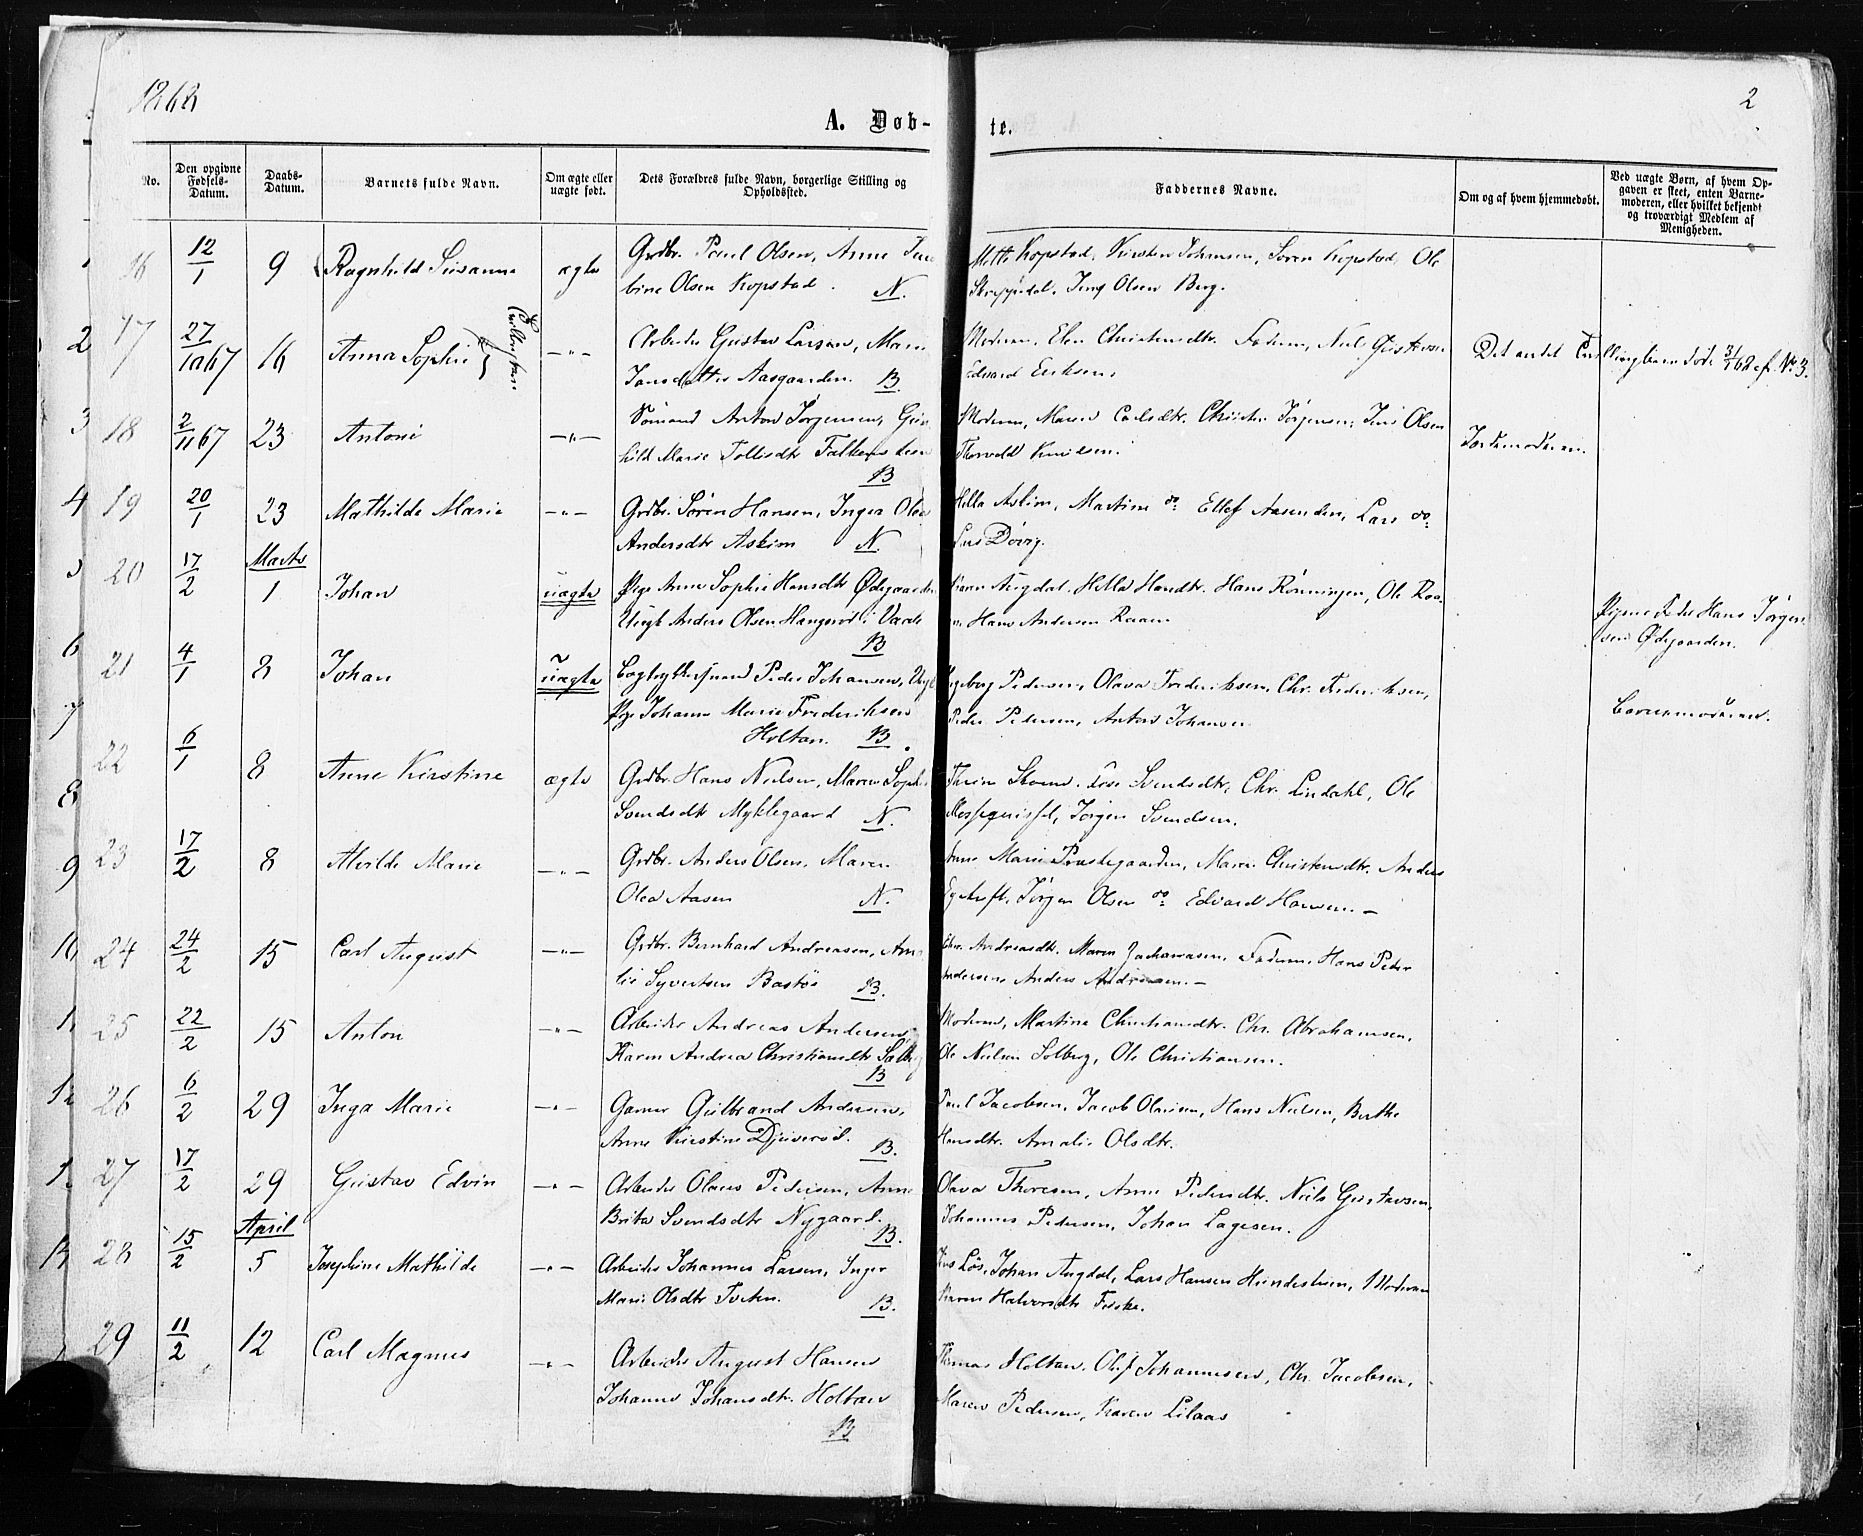 1868
2
A. Døb-
te.
No.
Den opgivne Fødsels-Datum.
Daabs-Datum.
Barnets fulde Navn.
Om ægte eller uægte født.
Dets Forældres fulde Navn, borgerlige Stilling og Opholdssted.
Faddernes Navne.
Om og af hvem hjemmedøbt.
Ved uægte Børn, af hvem Op-
gaven er skeet, enten Barne-
moderen, eller hvilket bekjendt
og troværdigt Medlem af
Menigheden.
16 12/1 9 Ragnhild Susanne ægte Grdbr. Paul Olsen, Anne
bine Olsen Kopstad. N.
Kopstad, Kirsten Johansen, Søren Kopstad, Ole
Olsen Berg.
2 17 27/10 67 16 Anna Sophie Tvillingbarn —"— Arbeider Gustav Larsen, Maren
Jansdatter Aasgaarden. B.
Moderen, Elen Christensdtr. Faderen, Niels Gustavsen
Edvard Eriksen.
Det andet Tvillingbarn død 31/1 68 cf. No 3.
3 18 2/11 67 23 Antoni —"— Sømand Anton Jørgensen, Gun
hild Marie Tollisdtr Falkensteen
B
Moderen, Maren Carlsdtr. Christen Jørgensen, Jens Olsen
Thorvald Knudsen.
Jordemoderen.
4 19 20/1 23 Mathilde Marie —"— Grdbr. Søren Hansen, Inger Olea
Andersdtr Askim N.
Hella Askim, Martine do Ellef Aasenden, Lars do
Lars Døvig.
20 17/2 Marts 1 Johan uægte Pige Anne Sophie Hansdtr Ødegaarden
Ungk Anders Olsen Hangerød i Vaale
B
Augdal. Hella Hansdtr. Hans Rønningen, Ole
Hans Andersen Raaen
Pigens Fader Hans Jørgen
sen Ødegaarden.
6 21 4/1 8 Johan uægte Peder Johansen,
Pige Johanne Marie Frederiksen
Holtan. B.
Ingeborg Pedersen, Olava Frederiksen, Chr. Frederiksen,
Peder Pedersen, Anton Johansen
Barnemoderen.
7
22 6/1 8 Anne Kirstine ægte Grdbr. Hans Nielsen, Maren Soph.
Svendsdtr Myklegaard N.
Svendsdtr, Chr. Lindahl, Ole
Jørgen Svendsen.
8
23 17/2 8 Alvilde Marie —"— Grdbr. Anders Olsen, Maren
Olea Aasen N.
Anne Marie Præstegaarden, Maren Christensdtr. Anders
Jørgen Olsen do Edvard Hansen. —
9
10 24 24/2 15 Carl August —"— Grdbr. Bernhard Andreasen, Ama
lie Syvertsen Bastøe B.
Andreasdtr. Maren Zachariasen, Faderen, Hans Peder
Andersen, Anders Andreasen. —
25 22/2 15 Anton —"— Arbeider Andreas Andersen
Karen Andrea Christiansdtr Solberg
B
Moderen, Martine Christiansdtr. Chr. Abrahamsen.
Ole Nielsen Solberg, Ole Christiansen.
12 26 6/2 29 Inga Marie —"— Garver Gulbrand Andersen,
Anne Kirstine Djuverød. B.
Paul Jacobsen, Jacob Olausen, Hans Nielsen, Berthe
Hansdtr. Amalie Olsdtr.
27 17/2 29 Gustav Edvin —"— Arbeider Olaus Pedersen, Anne
Brita Svendsdtr Nygaard. B.
Olava Thoresen, Anne Pedersdtr. Niels Gustavsen,
Johannes Pedersen, Johan Lagesen.
28 15/2 April 5 Josephine Mathilde —"— Arbeider Johannes Larsen, Inger
Marie Olsdtr Tveten. B.
Løs, Johan Augdal, Lars Hansen Hundestuen, Moderen
Karen Halvorsdtr Feske.
29 11/2 12 Carl Magnus —"— Arbeider August Hansen
Johanne Johansdtr. Holtan
B
Thomas Holtan. Oluf Johannesen, Chr. Jacobsen,
Maren Pedersen, Karen Lilaas